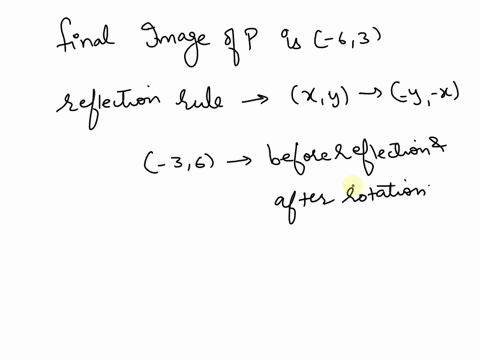 final Image of P is (-6,3)
reflection rule → (x,y) → (-y,-x)
(-3,6) → before reflection &
after rotation.